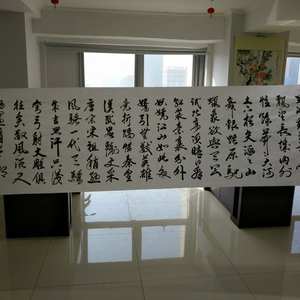 飄望長城内外
惟餘莽莽大河
上下頓失滔滔山
舞銀蛇原馳
蠟象欲與天公
試比高須晴日看
紅裝素裹分外
妖嬈江山如此多
嬌引無數英雄
競折腰惜秦皇
漢武略輸文采
唐宗宋祖稍遜
風騷一代天驕
成吉思汗只識
彎弓射大雕俱
往矣數風流人